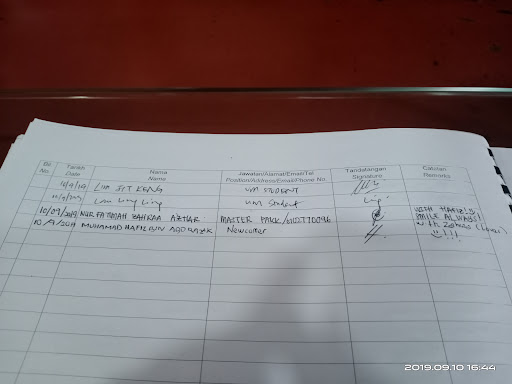 Bil. No. Tarikh Date Nama Name Jawatan/Alamat/Email/Tel Position/Address/Email/Phone No. Tandatangan Signature Catatan Remarks
LIM JIT KENG UM STUDENT
Lim Ling Ling UM Student Ling
10/09/2019 NUR FATIMAH ZAHRAA AZHAR MASTER PACK/ WISH HAFIZ'S SMILE ALWAYS!
10/9/2019 MUHAMAD HAFIZ BIN ABD RAZAK Newcomer with Zahraa !!!
2019.09.10 16:44